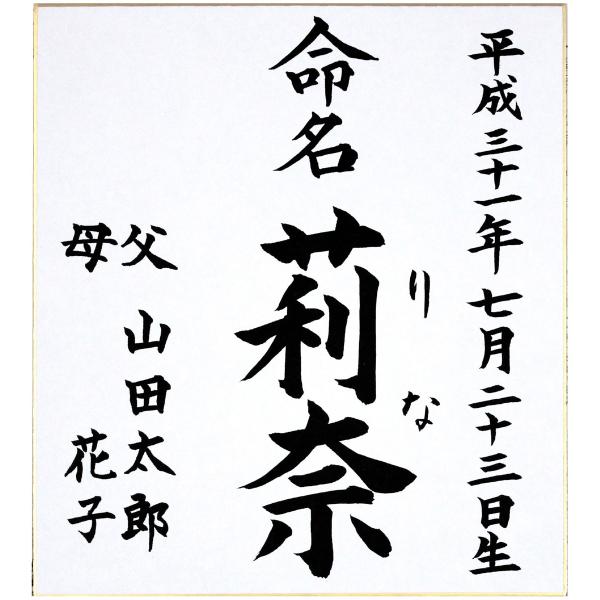 平成三十一年七月二十三日生
命名
莉奈
りな
父 山田太郎
母 花子